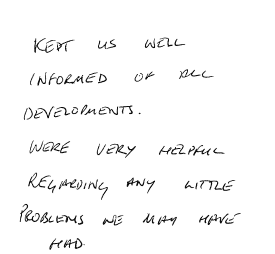 KEPT US WELL
INFORMED OF ALL
DEVELOPMENTS.
WERE VERY HELPFUL
REGARDING ANY LITTLE
PROBLEMS WE MAY HAVE
HAD.